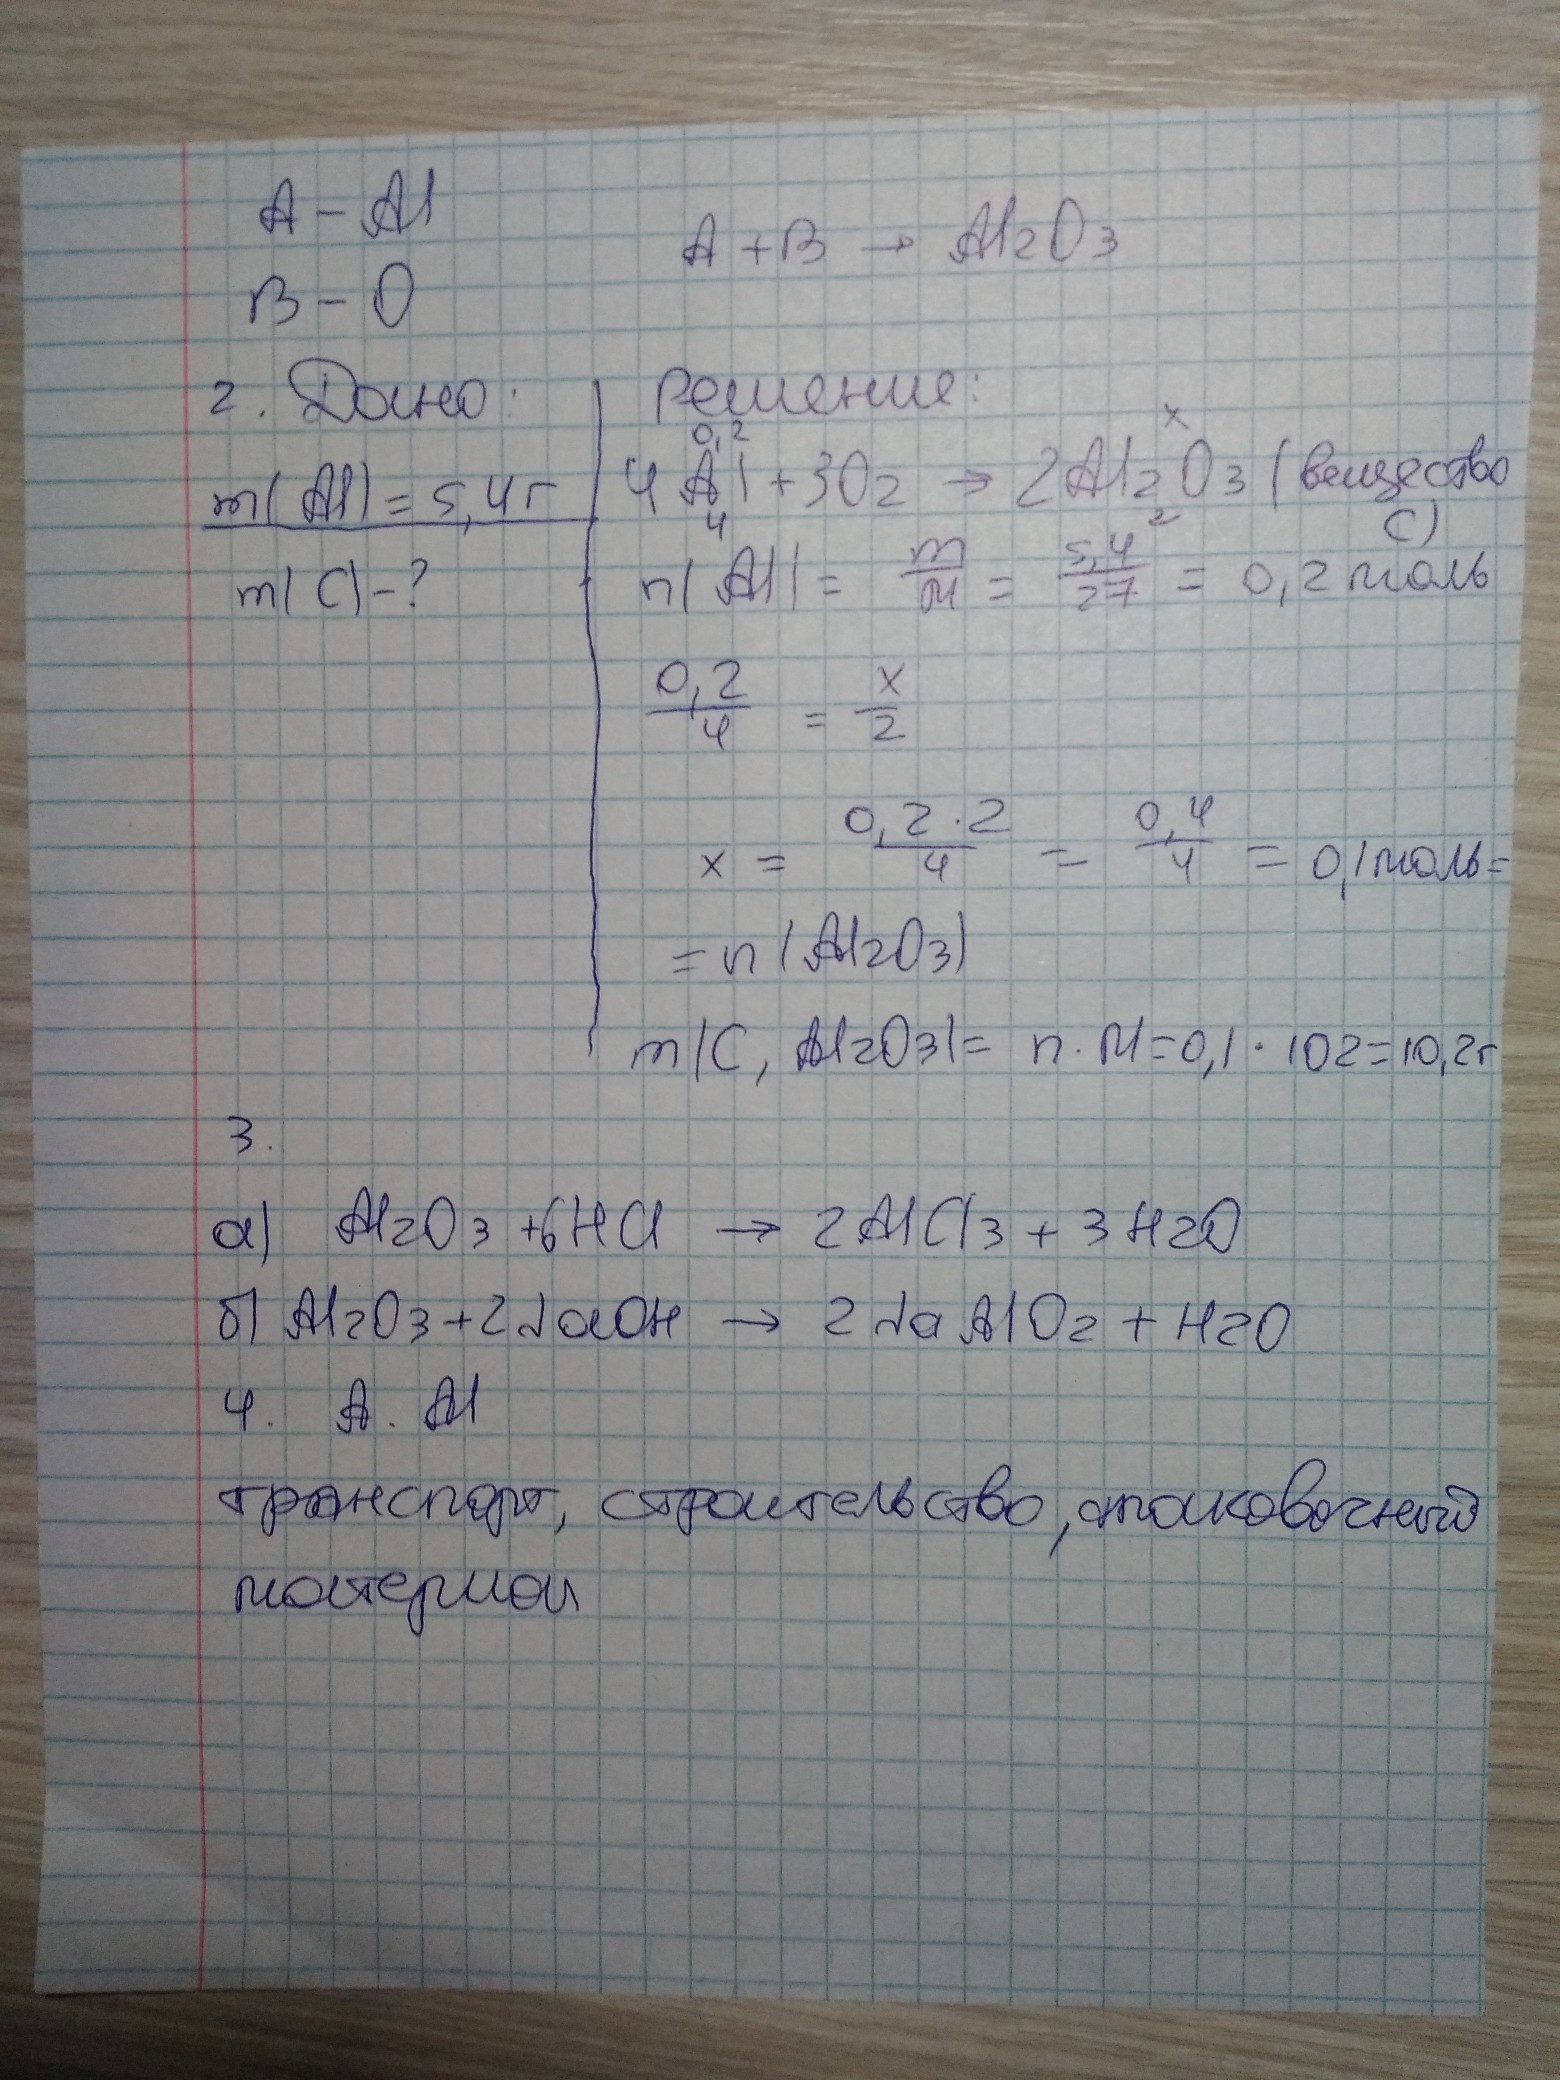 A – Al
B – O
A + B → Al2O3
2. Дано:
m(Al) = 5,4г
m(C) – ?
Решение:
0,2 x
4Al + 3O2 → 2Al2O3 (вещество
4 2 C)
n(Al) = m/M = 5,4/27 = 0,2 моль
0,2/4 = x/2
x = 0,2·2/4 = 0,4/4 = 0,1 моль =
= n(Al2O3)
m(C, Al2O3) = n·M = 0,1·102 = 10,2г
3.
а) Al2O3 + 6HCl → 2AlCl3 + 3H2O
б) Al2O3 + 2NaOH → 2NaAlO2 + H2O
4. A. Al
транспорт, строительство, упаковочный
материал